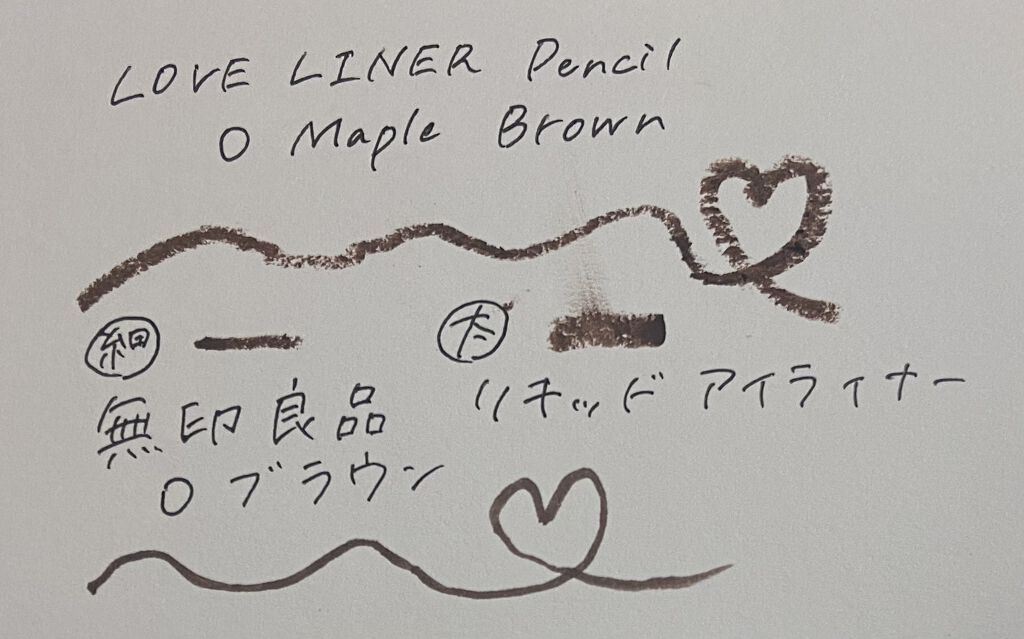 LOVE LINER Pencil
O Maple Brown
細 太
無印良品 リキッドアイライナー
O ブラウン